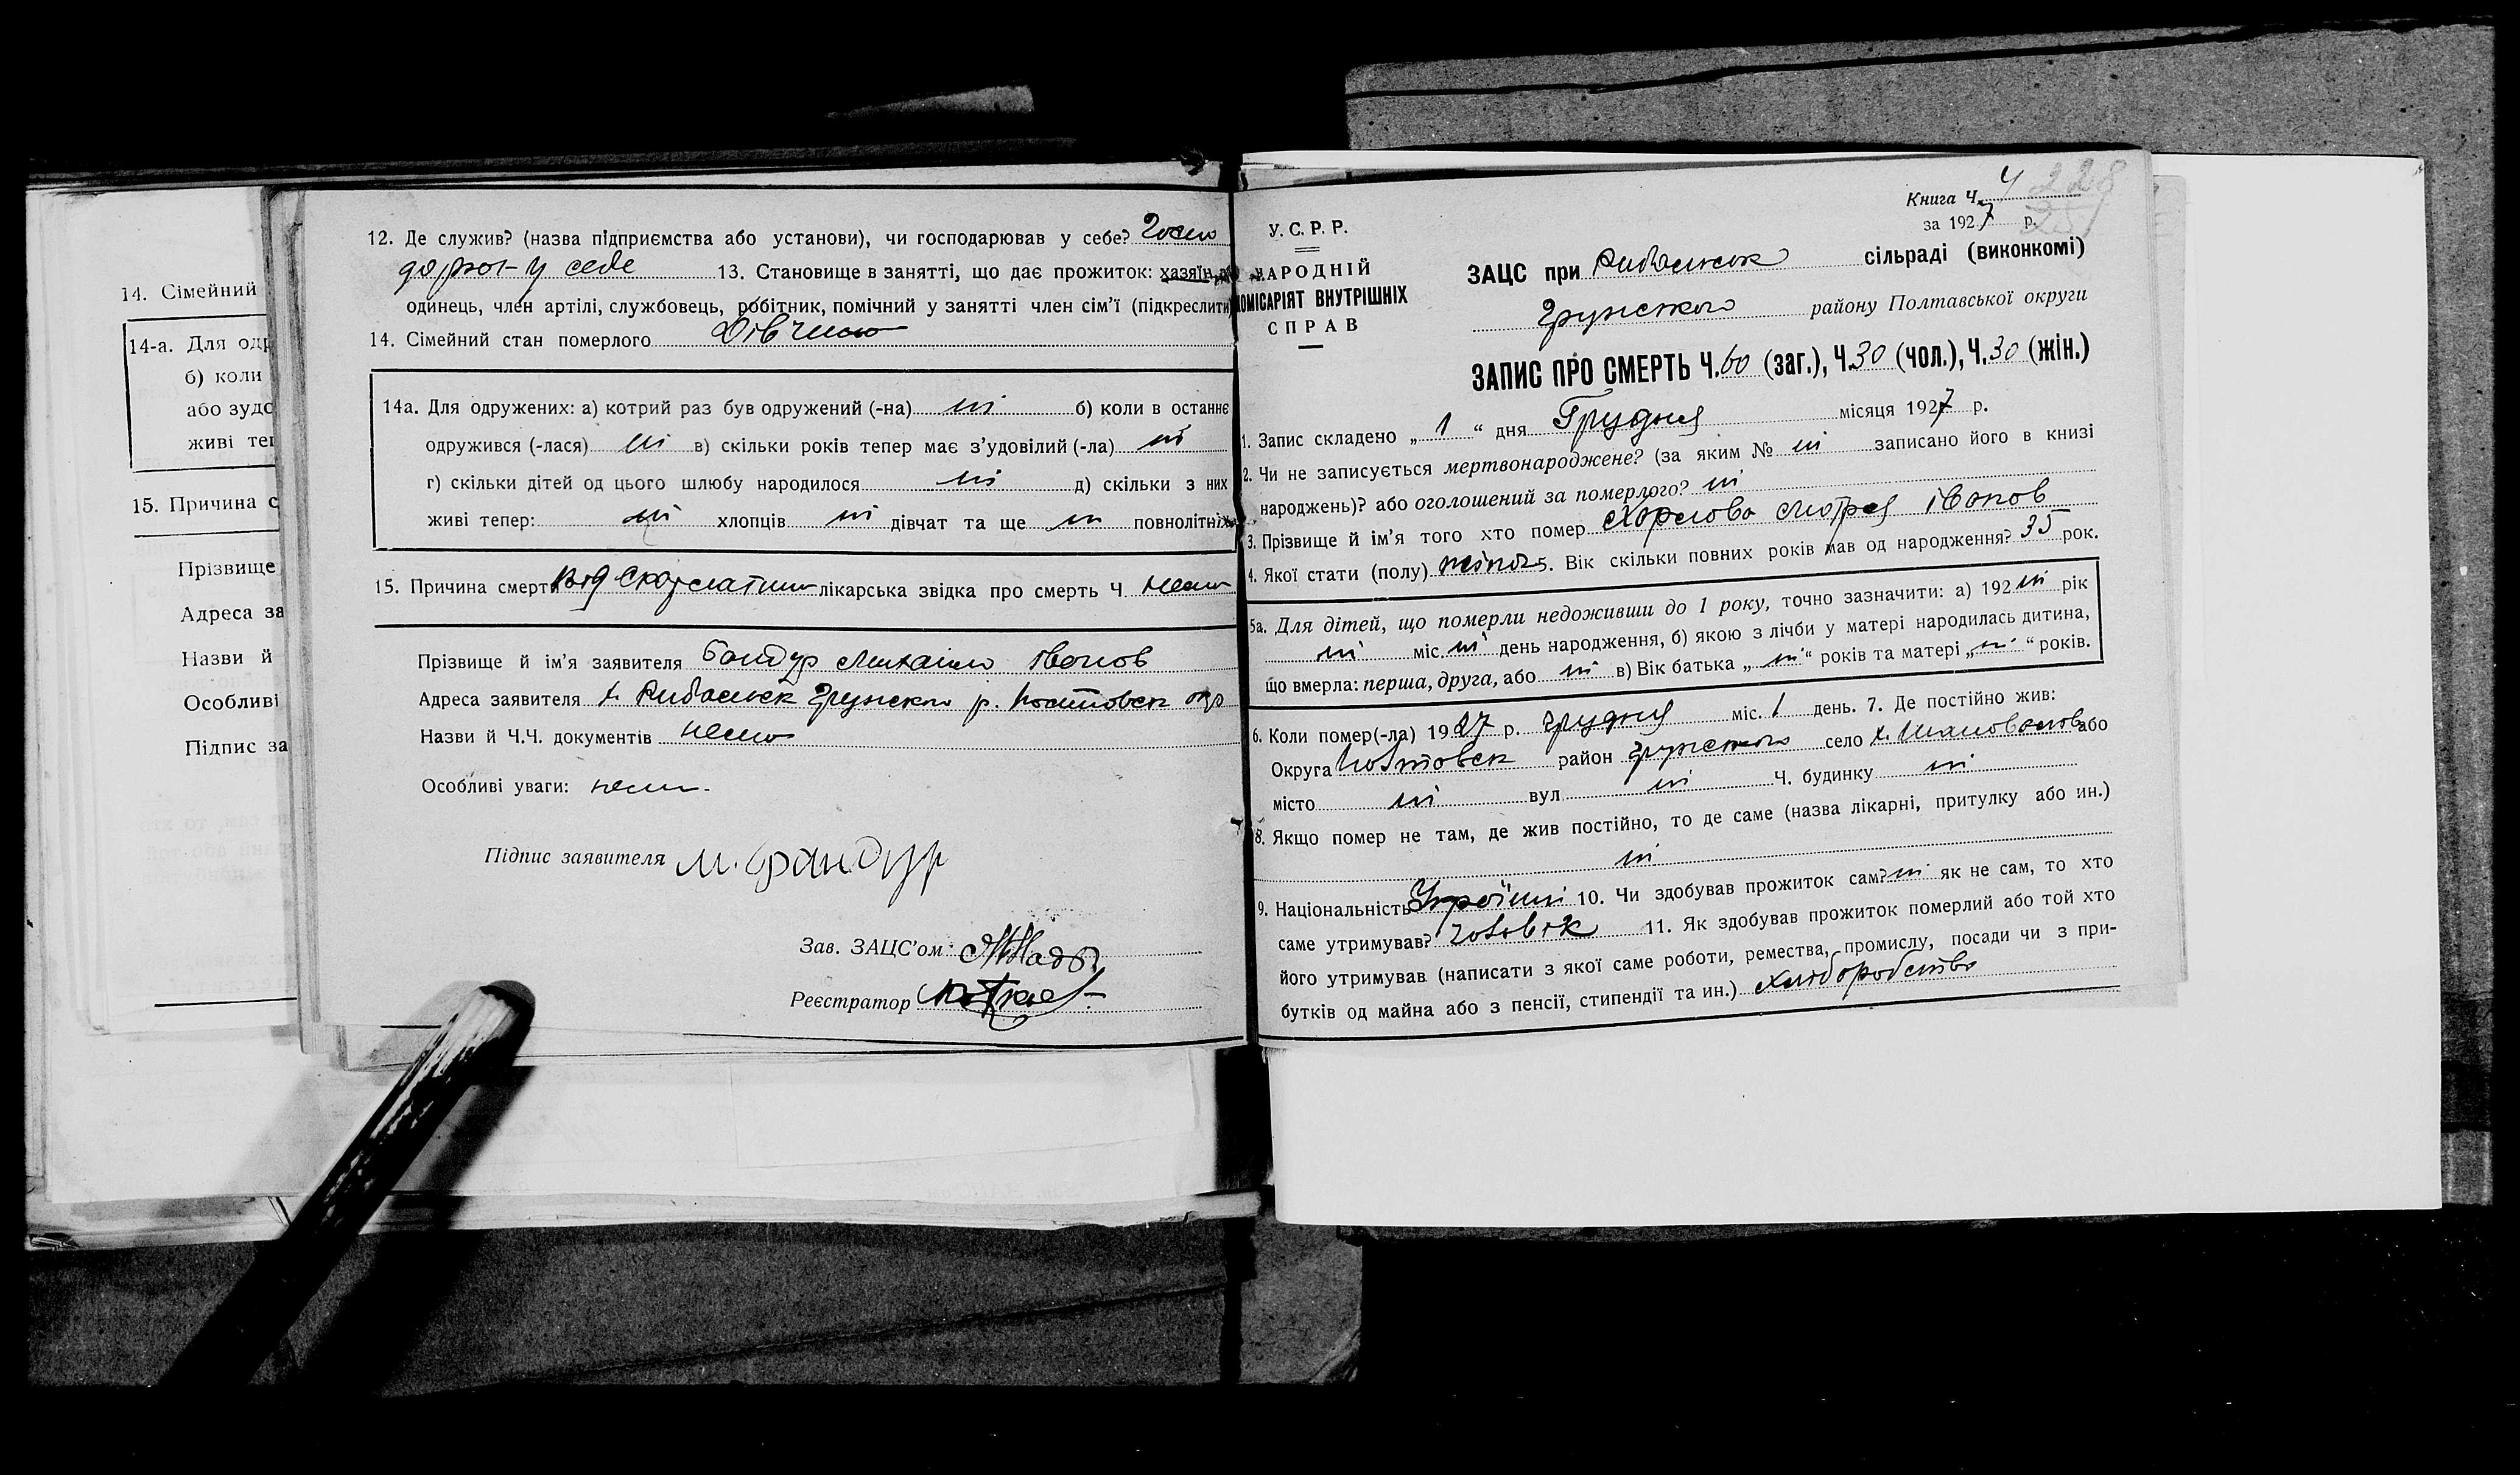 14. Сімейний
14-а. Для одр
б) коли
або зудо
живі теп
15. Причина с
Прізвище
Адреса за
Назви й
Особливі
Підпис за
12. Де служив? (назва підприємства або установи), чи господарював у себе? Госпо
дарюв у себе 13. Становище в занятті, що дає прожиток: хазяїн,
одинець, член артілі, службовець, робітник, помічний у занятті член сім’ї (підкреслити)
14. Сімейний стан померлого Дівчина
14а. Для одружених: а) котрий раз був одружений (-на) ні б) коли в останнє
одружився (-лася) ні в) скільки років тепер має з’удовілий (-ла) ні
г) скільки дітей од цього шлюбу народилося ні д) скільки з них
живі тепер: ні хлопців ні дівчат та ще ні повнолітніх
15. Причина смерти Від Скарлатини лікарська звідка про смерть Ч. Нема
Прізвище й ім’я заявителя Бандур Михаило Іванов
Адреса заявителя х. Рибальськ Грунського р. Полтовськ окр
Назви й Ч.Ч. документів нема
Особливі уваги: нема
Підпис заявителя М. Бандур
Зав. ЗАЦС’ом
Реєстратор
У.С.Р.Р.
НАРОДНІЙ
КОМІСАРІЯТ ВНУТРІШНІХ
СПРАВ
Книга Ч. 4 228
за 1927 р.
ЗАЦС при Рибальськ сільраді (виконкомі)
Грунського району Полтавської округи
ЗАПИС ПРО СМЕРТЬ Ч. 60 (заг.), Ч. 30 (чол.), Ч. 30 (жін.)
1. Запис складено „ 1 “ дня Грудня місяця 1927 р.
2. Чи не записується мертвонароджене? (за яким № ні записано його в книзі
народжень)? або оголошений за померлого? ні
3. Прізвище й ім’я того хто помер Мотря Іванов
4. Якої стати (полу) жіноч 5. Вік скільки повних років мав од народження? 35 рок.
5а. Для дітей, що померли недоживши до 1 року, точно зазначити: а) 192 ні рік
ні міс. ні день народження, б) якою з лічби у матері народилась дитина,
що вмерла: перша, друга, або ні в) Вік батька „ ні “ років та матері „ ні “ років.
6. Коли помер(-ла) 1927 р. грудня міс. 1 день. 7. Де постійно жив:
Округа Полтовськ район Грунського село х. або
місто ні вул ні Ч. будинку ні
8. Якщо помер не там, де жив постійно, то де саме (назва лікарні, притулку або ин.)
ні
9. Національність Україні 10. Чи здобував прожиток сам? ні як не сам, то хто
саме утримував? Чоловік 11. Як здобував прожиток померлий або той хто
його утримував (написати з якої саме роботи, ремества, промислу, посади чи з при-
бутків од майна або з пенсії, стипендії та ин.) хліборобство